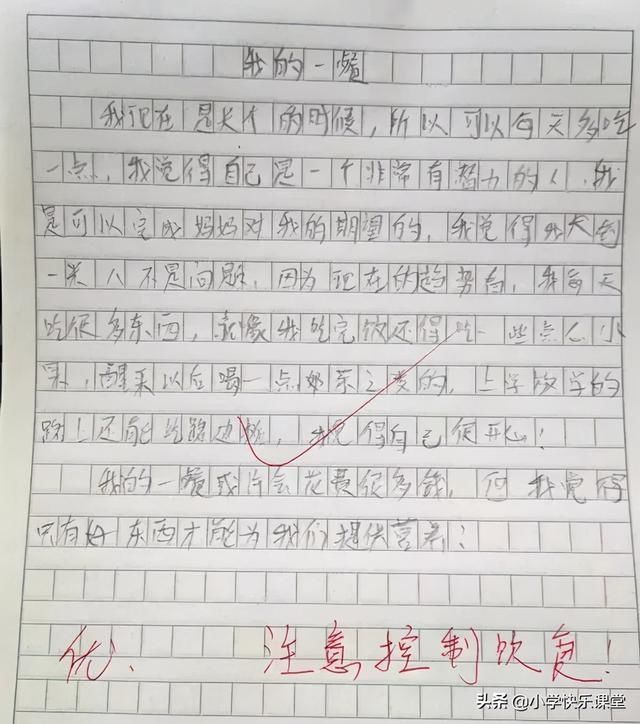 我的一餐
我现在是长个的时候，所以可以每天多吃
一点，我觉得自己是一个非常有潜力的人，我
是可以完成妈妈对我的期望的，我觉得我长到
一米八不是问题，因为现在的趋势高，我每天
吃很多东西，就像我吃完饭还得吃一些点心水
果，醒来以后喝一点奶茶之类的，上学放学的
路上还能吃路边，我觉得自己很开心！
我的一餐或许会花费很多钱，但我觉得
只有好东西才能为我们提供营养！
优、 注意控制饮食！
头条 @小学快乐课堂